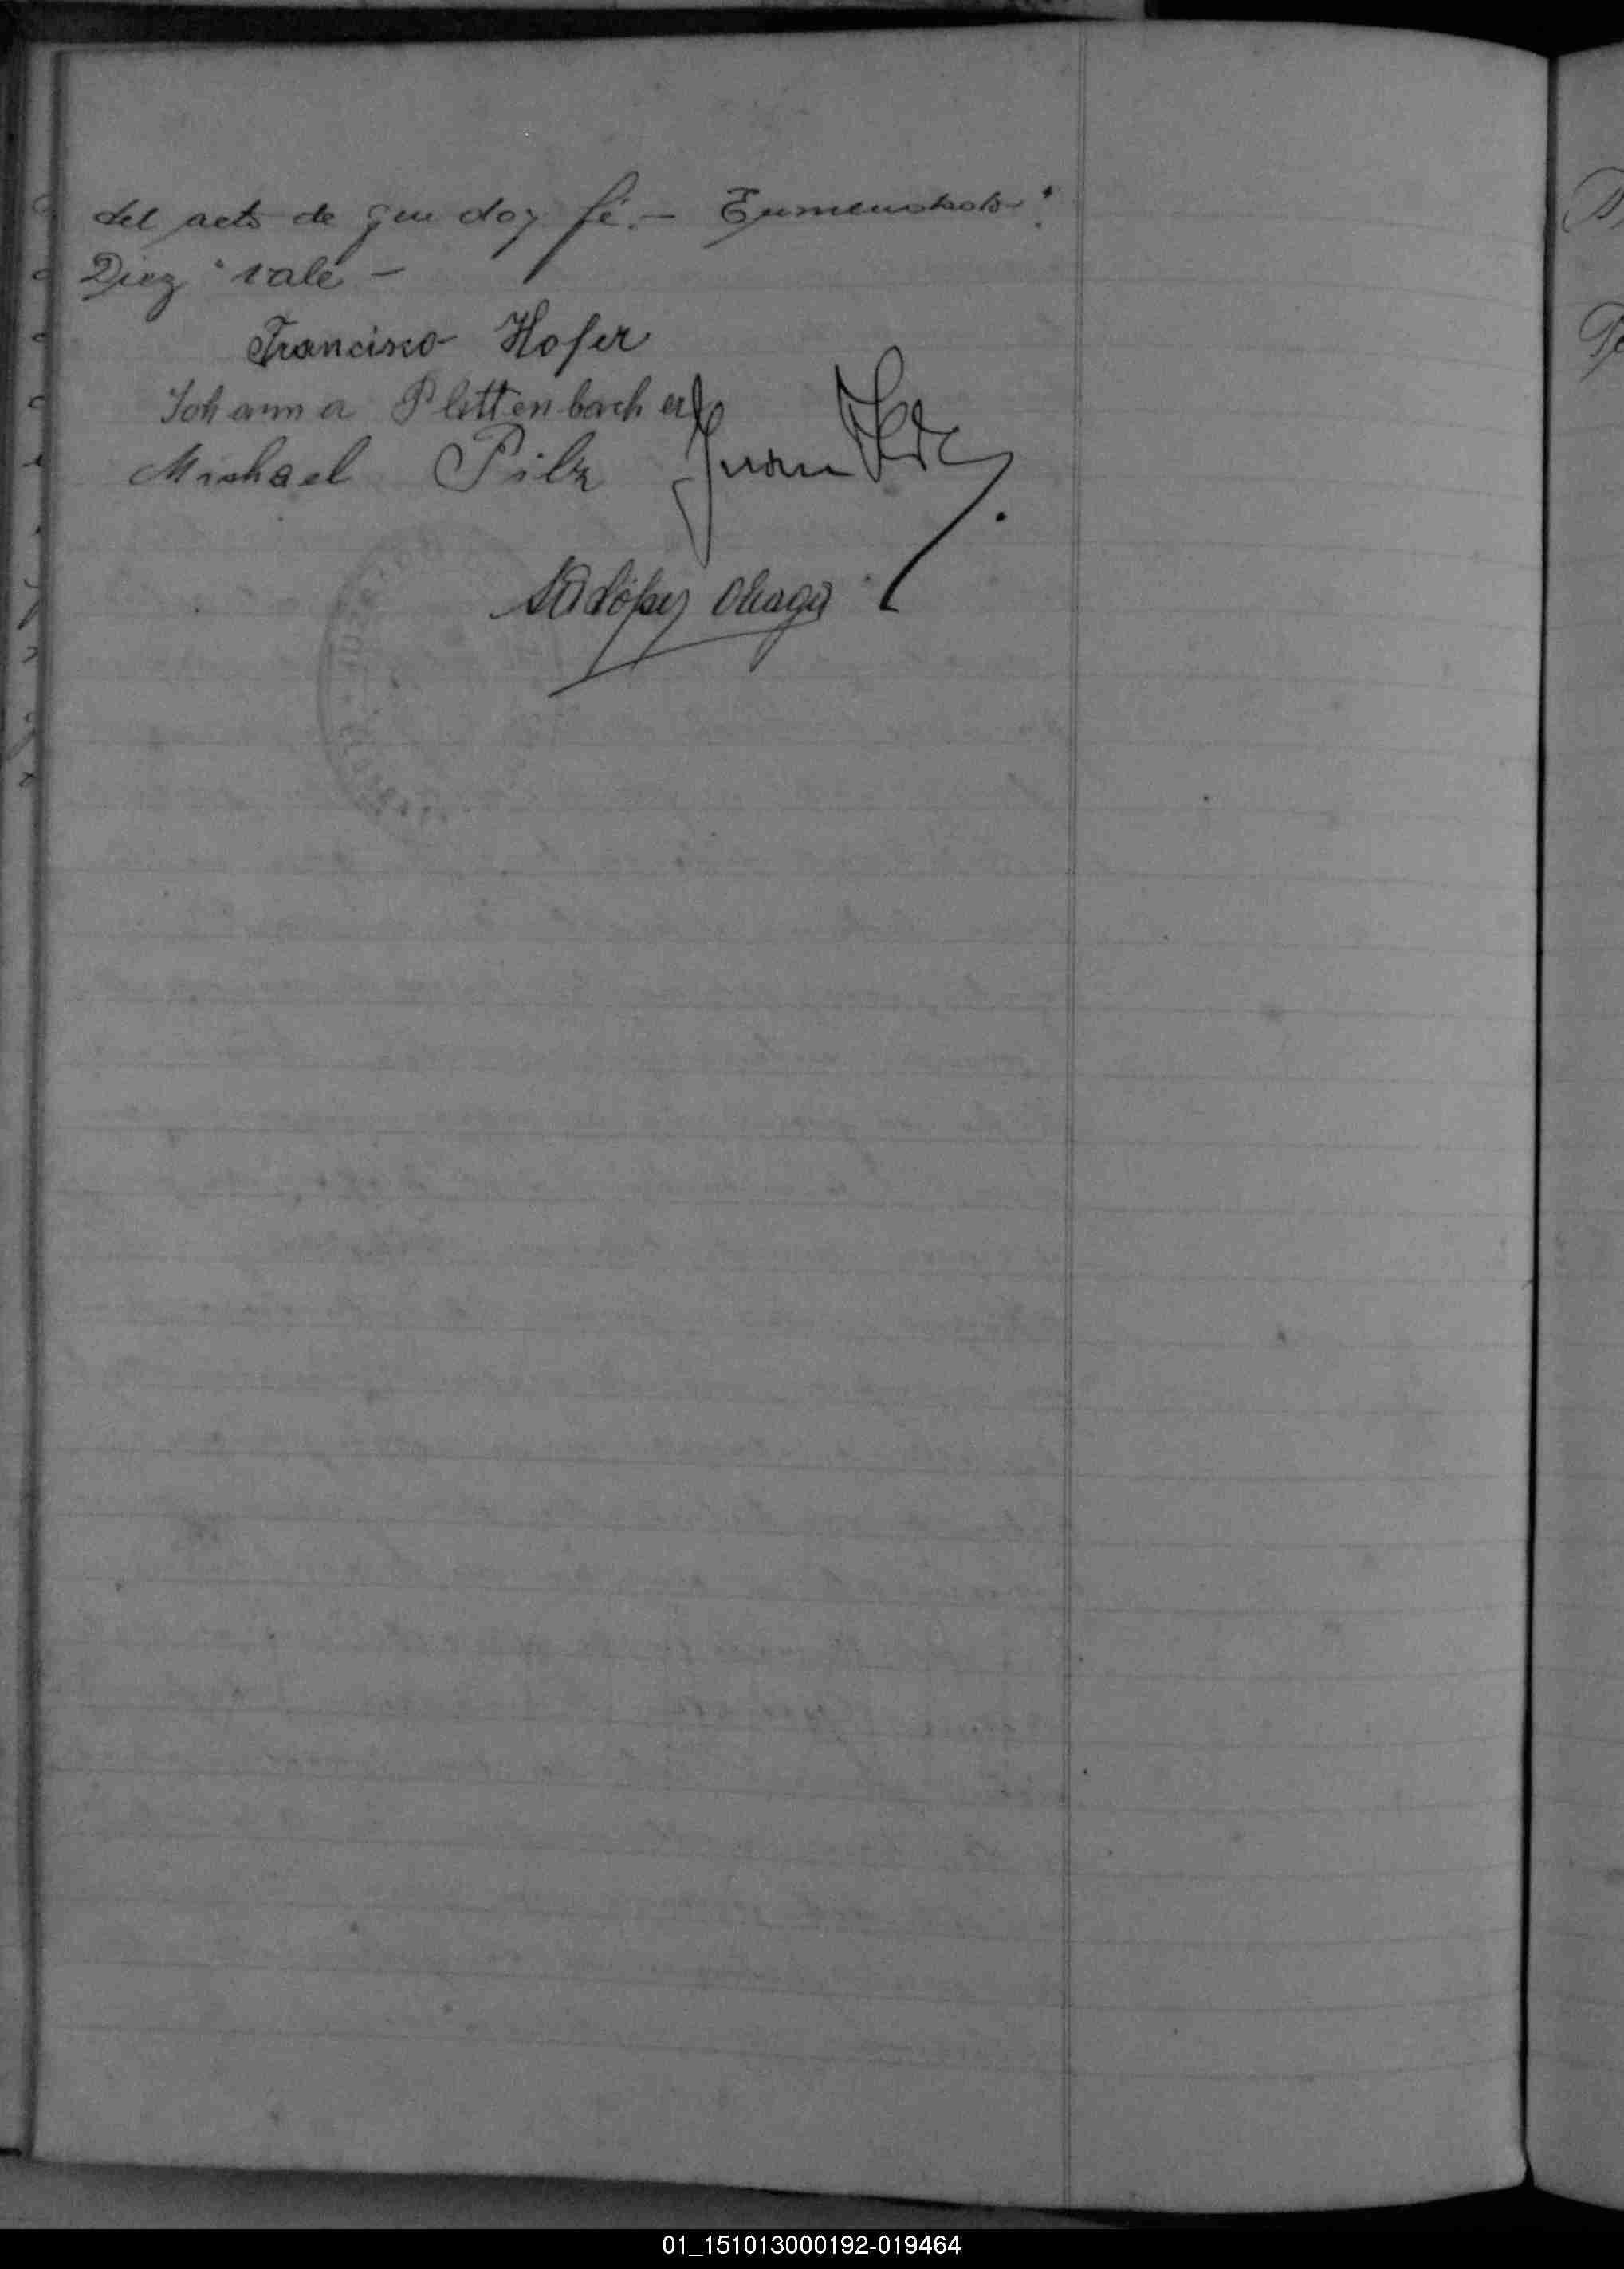 del acto de que doy fé.- Enmendado:
Diez "vale -
Francisco Hofer
Johanna Plettenbacher
Michael Pilz Juan
López Chaga
01_151013000192-019464